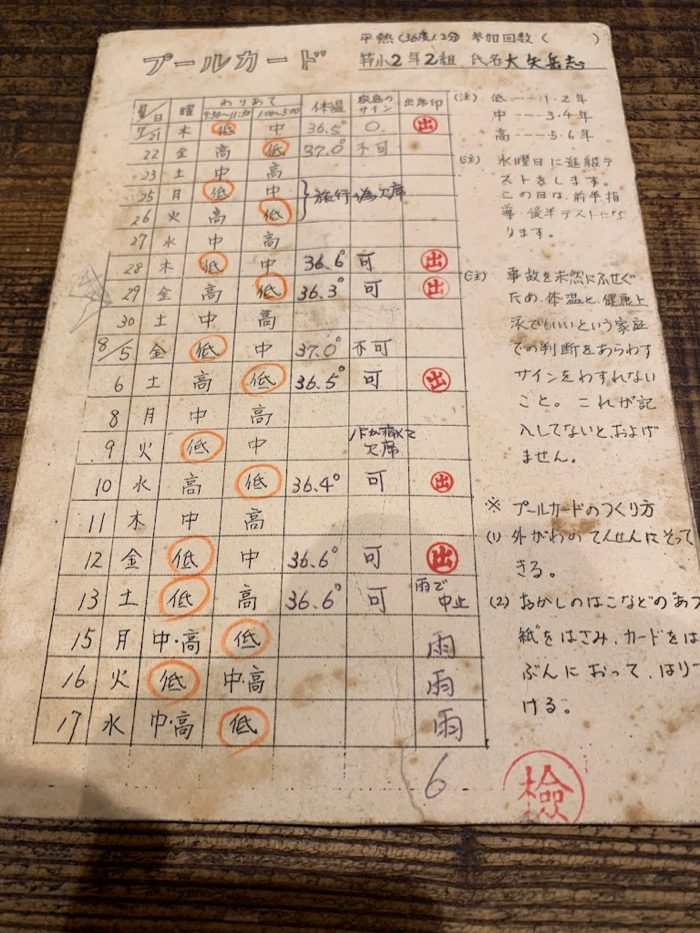 プールカード
平熱(36度1.2分) 参加回数( )
2年2組 氏名
月/日 曜 わりあて 体温 家庭のサイン 出席印
9:30〜11:30 1:00〜3:00
7/21 木 低 中 36.5° 〇 出
22 金 高 低 37.0° 不可
23 土 中 高
25 月 低 中 旅行の為欠席
26 火 高 低
27 水 中 高
28 木 低 中 36.6° 可 出
29 金 高 低 36.3° 可 出
30 土 中 高
8/5 金 低 中 37.0° 不可
6 土 高 低 36.5° 可 出
8 月 中 高
9 火 低 中 欠席
10 水 高 低 36.4° 可 出
11 木 中 高
12 金 低 中 36.6° 可 出
13 土 低 高 36.6° 可 雨で中止
15 月 中・高 低 雨
16 火 低 中・高 雨
17 水 中・高 低 雨
6
(注) 低---1・2年
中---3・4年
高---5・6年
(注) 水曜日に進級テ
ストをします。
この日は、前半指
導・後半テストにな
ります。
(注) 事故を未然にふせぐ
ため、体温と、健康上
泳いでもいいという家庭
での判断をあらわす
サインをわすれない
こと。これが記
入してないと、およげ
ません。
※ プールカードのつくり方
(1) 外がわのてんせんにそって
きる。
(2) おかしのはこなどのあつ
紙をはさみ、カードをは
ぶんにおって、はりつ
ける。
検